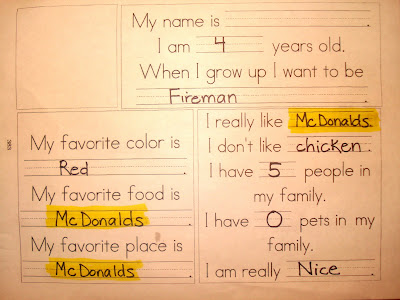 My name is
I am 4 years old.
When I grow up I want to be
Fireman.
My favorite color is
Red.
My favorite food is
McDonalds.
My favorite place is
McDonalds.
I really like McDonalds.
I don't like chicken.
I have 5 people in
my family.
I have 0 pets in my
family.
I am really Nice.